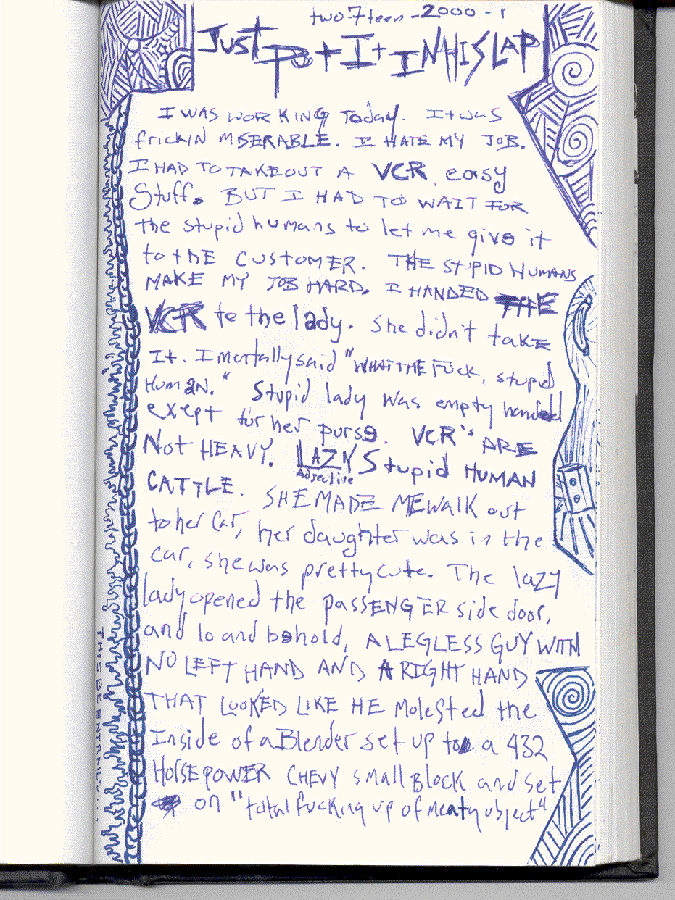 two7teen-2000-1
JUST Put It IN HIS LAP
I WAS WORKING Today. It was
frickin MSERABLE. I HATE MY JOB.
I HAD TO TAKE OUT A VCR. easy
Stuff. BUT I HAD TO WAIT FOR
the stupid humans to let me give it
to tHE CUSTOMER. THE STUPID HUMANS
MAKE MY JOB HARD. I HANDED THE
VCR to the lady. She didn't take
It. I mentally said "WHAT THE FUCK, stupid
HUMAN." Stupid lady was empty handed
exept for her purse. VCR's ARE
Not HEAVY. LAZY Stupid HUMAN
Adjective
CATTLE. SHE MADE ME WALK out
to her Car, her daughter was in the
car, she was pretty cute. The lazy
lady opened the PASSENGER side door,
and lo and behold, A LEGLESS GUY WITH
NO LEFT HAND AND A RIGHT HAND
THAT LOOKED LIKE HE Molested the
Inside of a Blender set up to a 432
HORSEPOWER CHEVY SMALL BLOCK and set
on "total fucking up of meaty object"